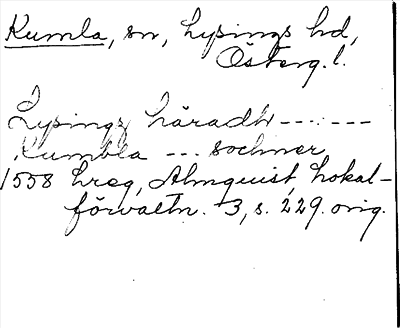 Kumla, sn, Lysings hd,
Österg. l.
Lysingz häradh --- ---
Kumbla --- sochner
1558 hreg, Almquist, Lokal-
förvaltn. 3, s. 229. orig.